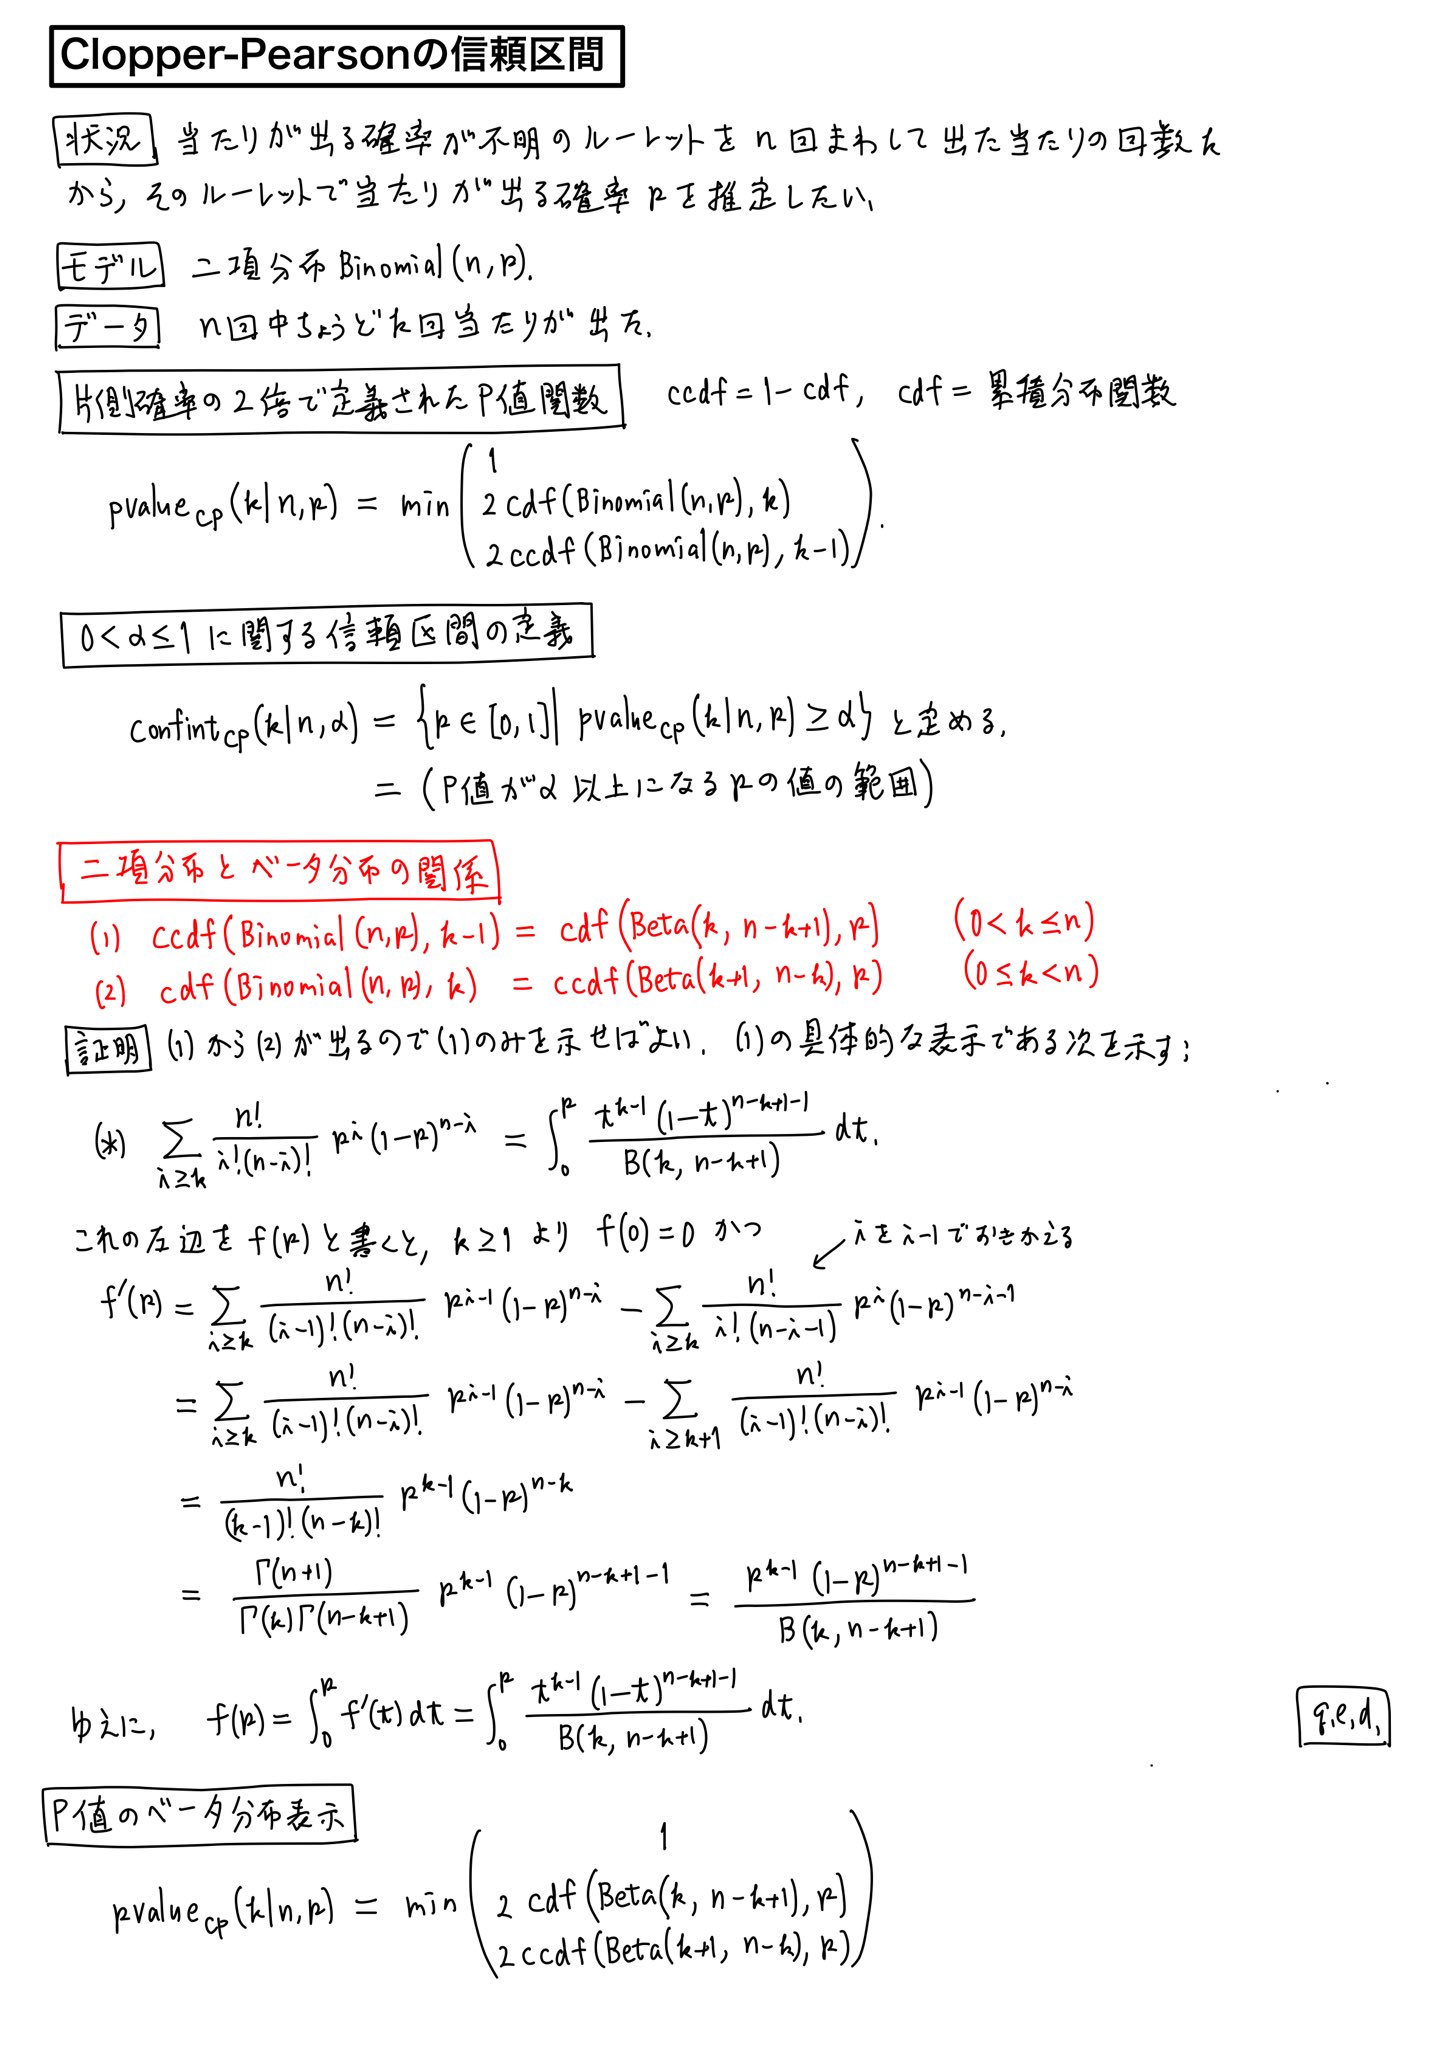 Clopper-Pearsonの信頼区間
状況 当たりが出る確率が不明のルーレットを n 回まわして出た当たりの回数k
から, そのルーレットで当たりが出る確率 p を推定したい.
モデル 二項分布 Binomial(n, p).
データ n回中ちょうどk回当たりが出た.
片側確率の2倍で定義されたP値関数 ccdf = 1 - cdf, cdf = 累積分布関数
pvalue_CP(k|n, p) = min ( 1
2 cdf(Binomial(n, p), k)
2 ccdf(Binomial(n, p), k-1) ).
0 < α ≤ 1 に関する信頼区間の定義
confint_CP(k|n, α) = {p ∈ [0, 1] | pvalue_CP(k|n, p) ≥ α} と定める.
= (P値がα以上になるpの値の範囲)
二項分布とベータ分布の関係
(1) ccdf(Binomial(n, p), k-1) = cdf(Beta(k, n-k+1), p) (0 < k ≤ n)
(2) cdf(Binomial(n, p), k) = ccdf(Beta(k+1, n-k), p) (0 ≤ k < n)
証明 (1)から(2)が出るので(1)のみを示せばよい. (1)の具体的な表示である次を示す:
(*) Σ_{i≥k} n!/(i!(n-i)!) p^i (1-p)^{n-i} = ∫_0^p t^{k-1} (1-t)^{n-k+1-1} / B(k, n-k+1) dt.
これの左辺を f(p) と書くと, k ≥ 1 より f(0) = 0 かつ
iをi-1でおきかえる
f'(p) = Σ_{i≥k} n!/((i-1)!(n-i)!) p^{i-1} (1-p)^{n-i} - Σ_{i≥k} n!/(i!(n-i-1)) p^i (1-p)^{n-i-1}
= Σ_{i≥k} n!/((i-1)!(n-i)!) p^{i-1} (1-p)^{n-i} - Σ_{i≥k+1} n!/((i-1)!(n-i)!) p^{i-1} (1-p)^{n-i}
= n!/((k-1)!(n-k)!) p^{k-1} (1-p)^{n-k}
= Γ(n+1)/(Γ(k)Γ(n-k+1)) p^{k-1} (1-p)^{n-k+1-1} = p^{k-1} (1-p)^{n-k+1-1} / B(k, n-k+1)
ゆえに, f(p) = ∫_0^p f'(t) dt = ∫_0^p t^{k-1} (1-t)^{n-k+1-1} / B(k, n-k+1) dt.
q.e.d.
P値のベータ分布表示
pvalue_CP(k|n, p) = min ( 1
2 cdf(Beta(k, n-k+1), p)
2 ccdf(Beta(k+1, n-k), p) )